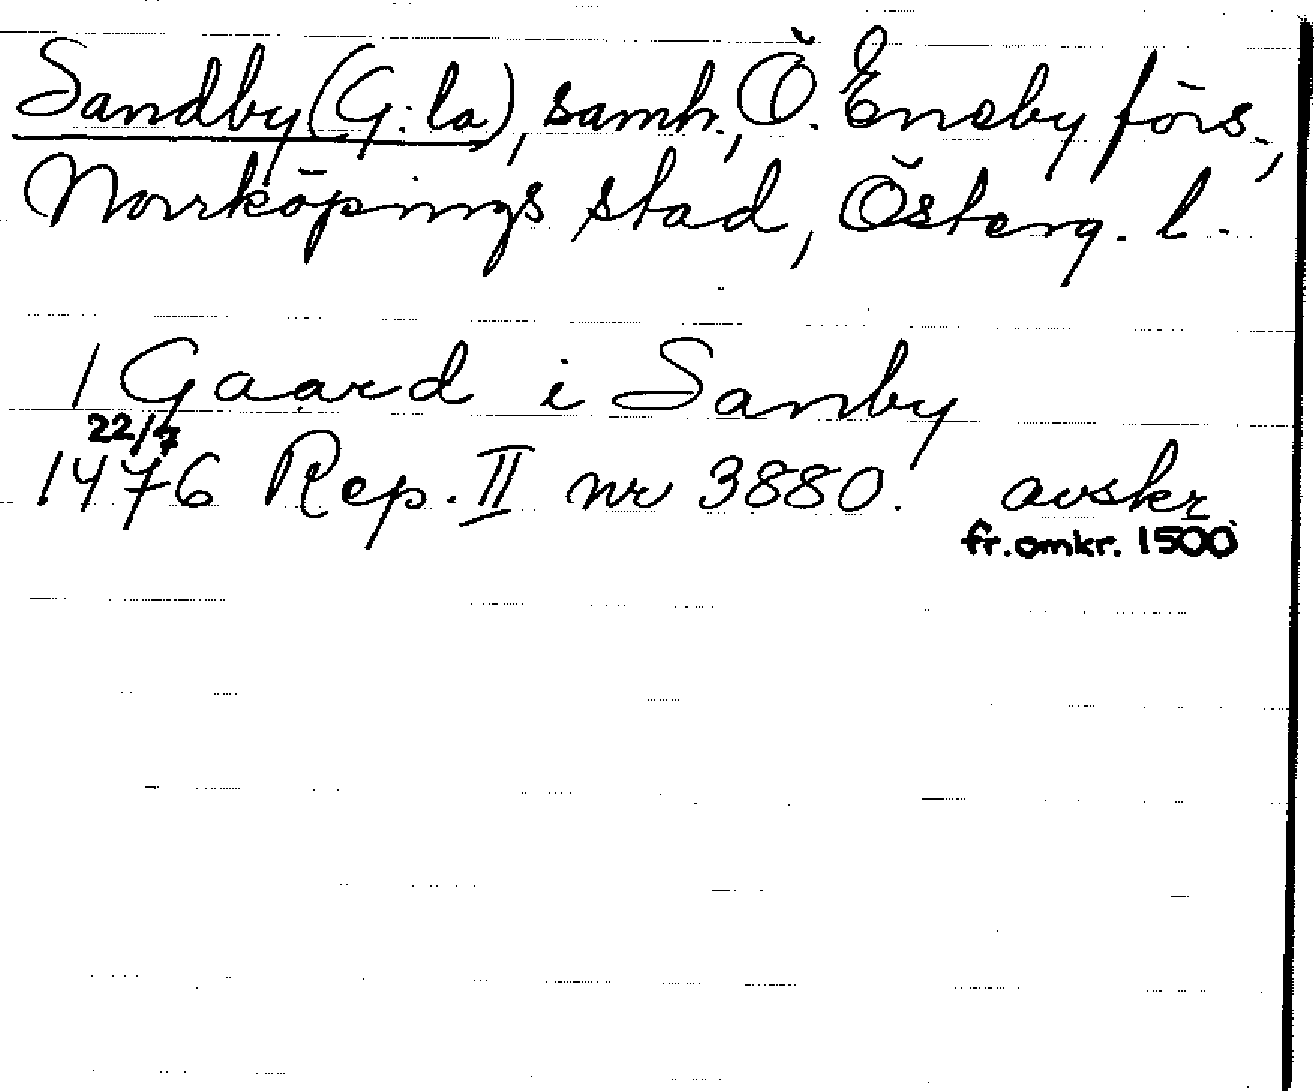 Sandby (G:la), samh., Ö. Eneby förs.,
Norrköpings stad, Österg. l.
1 Gaard i Sanby
22/7
1476 Rep. II nr 3880. avskr.
fr. omkr. 1500